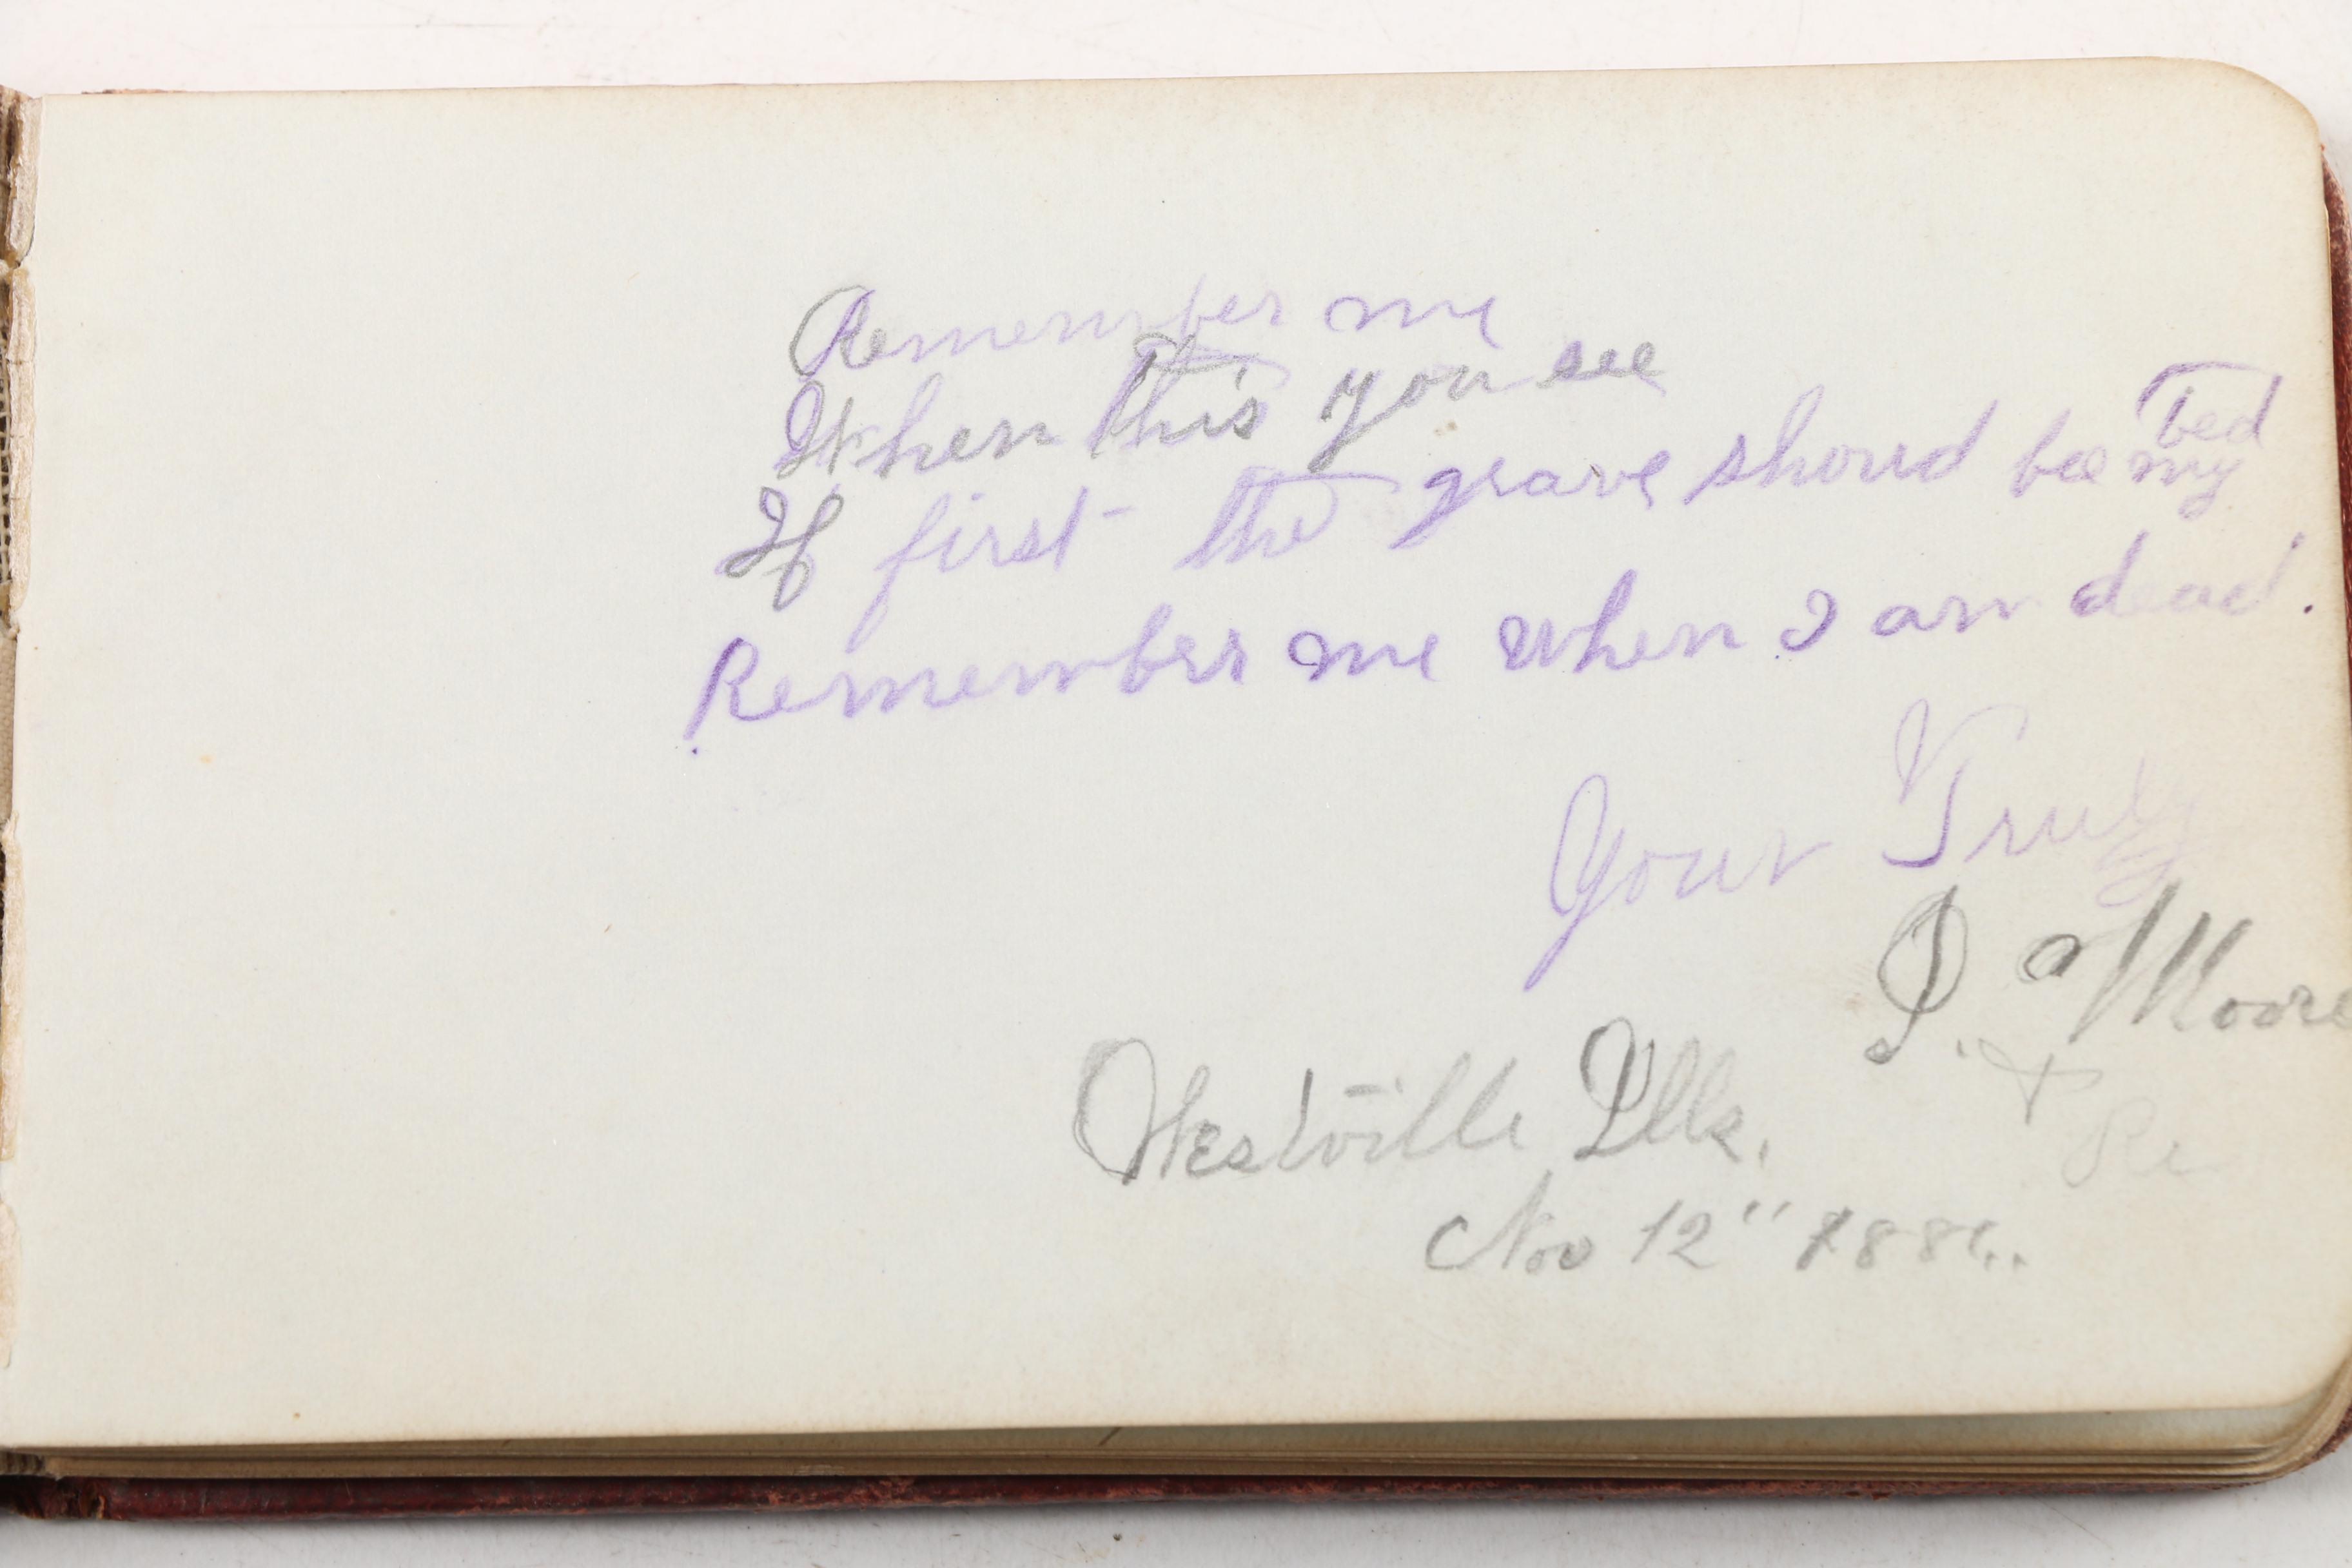 Remember me
When this you see
If first the grave shoud bee my bed
Remember me when I am dead.
Your Truly
J. a Moore
Westville Ills.
Nov 12" 188